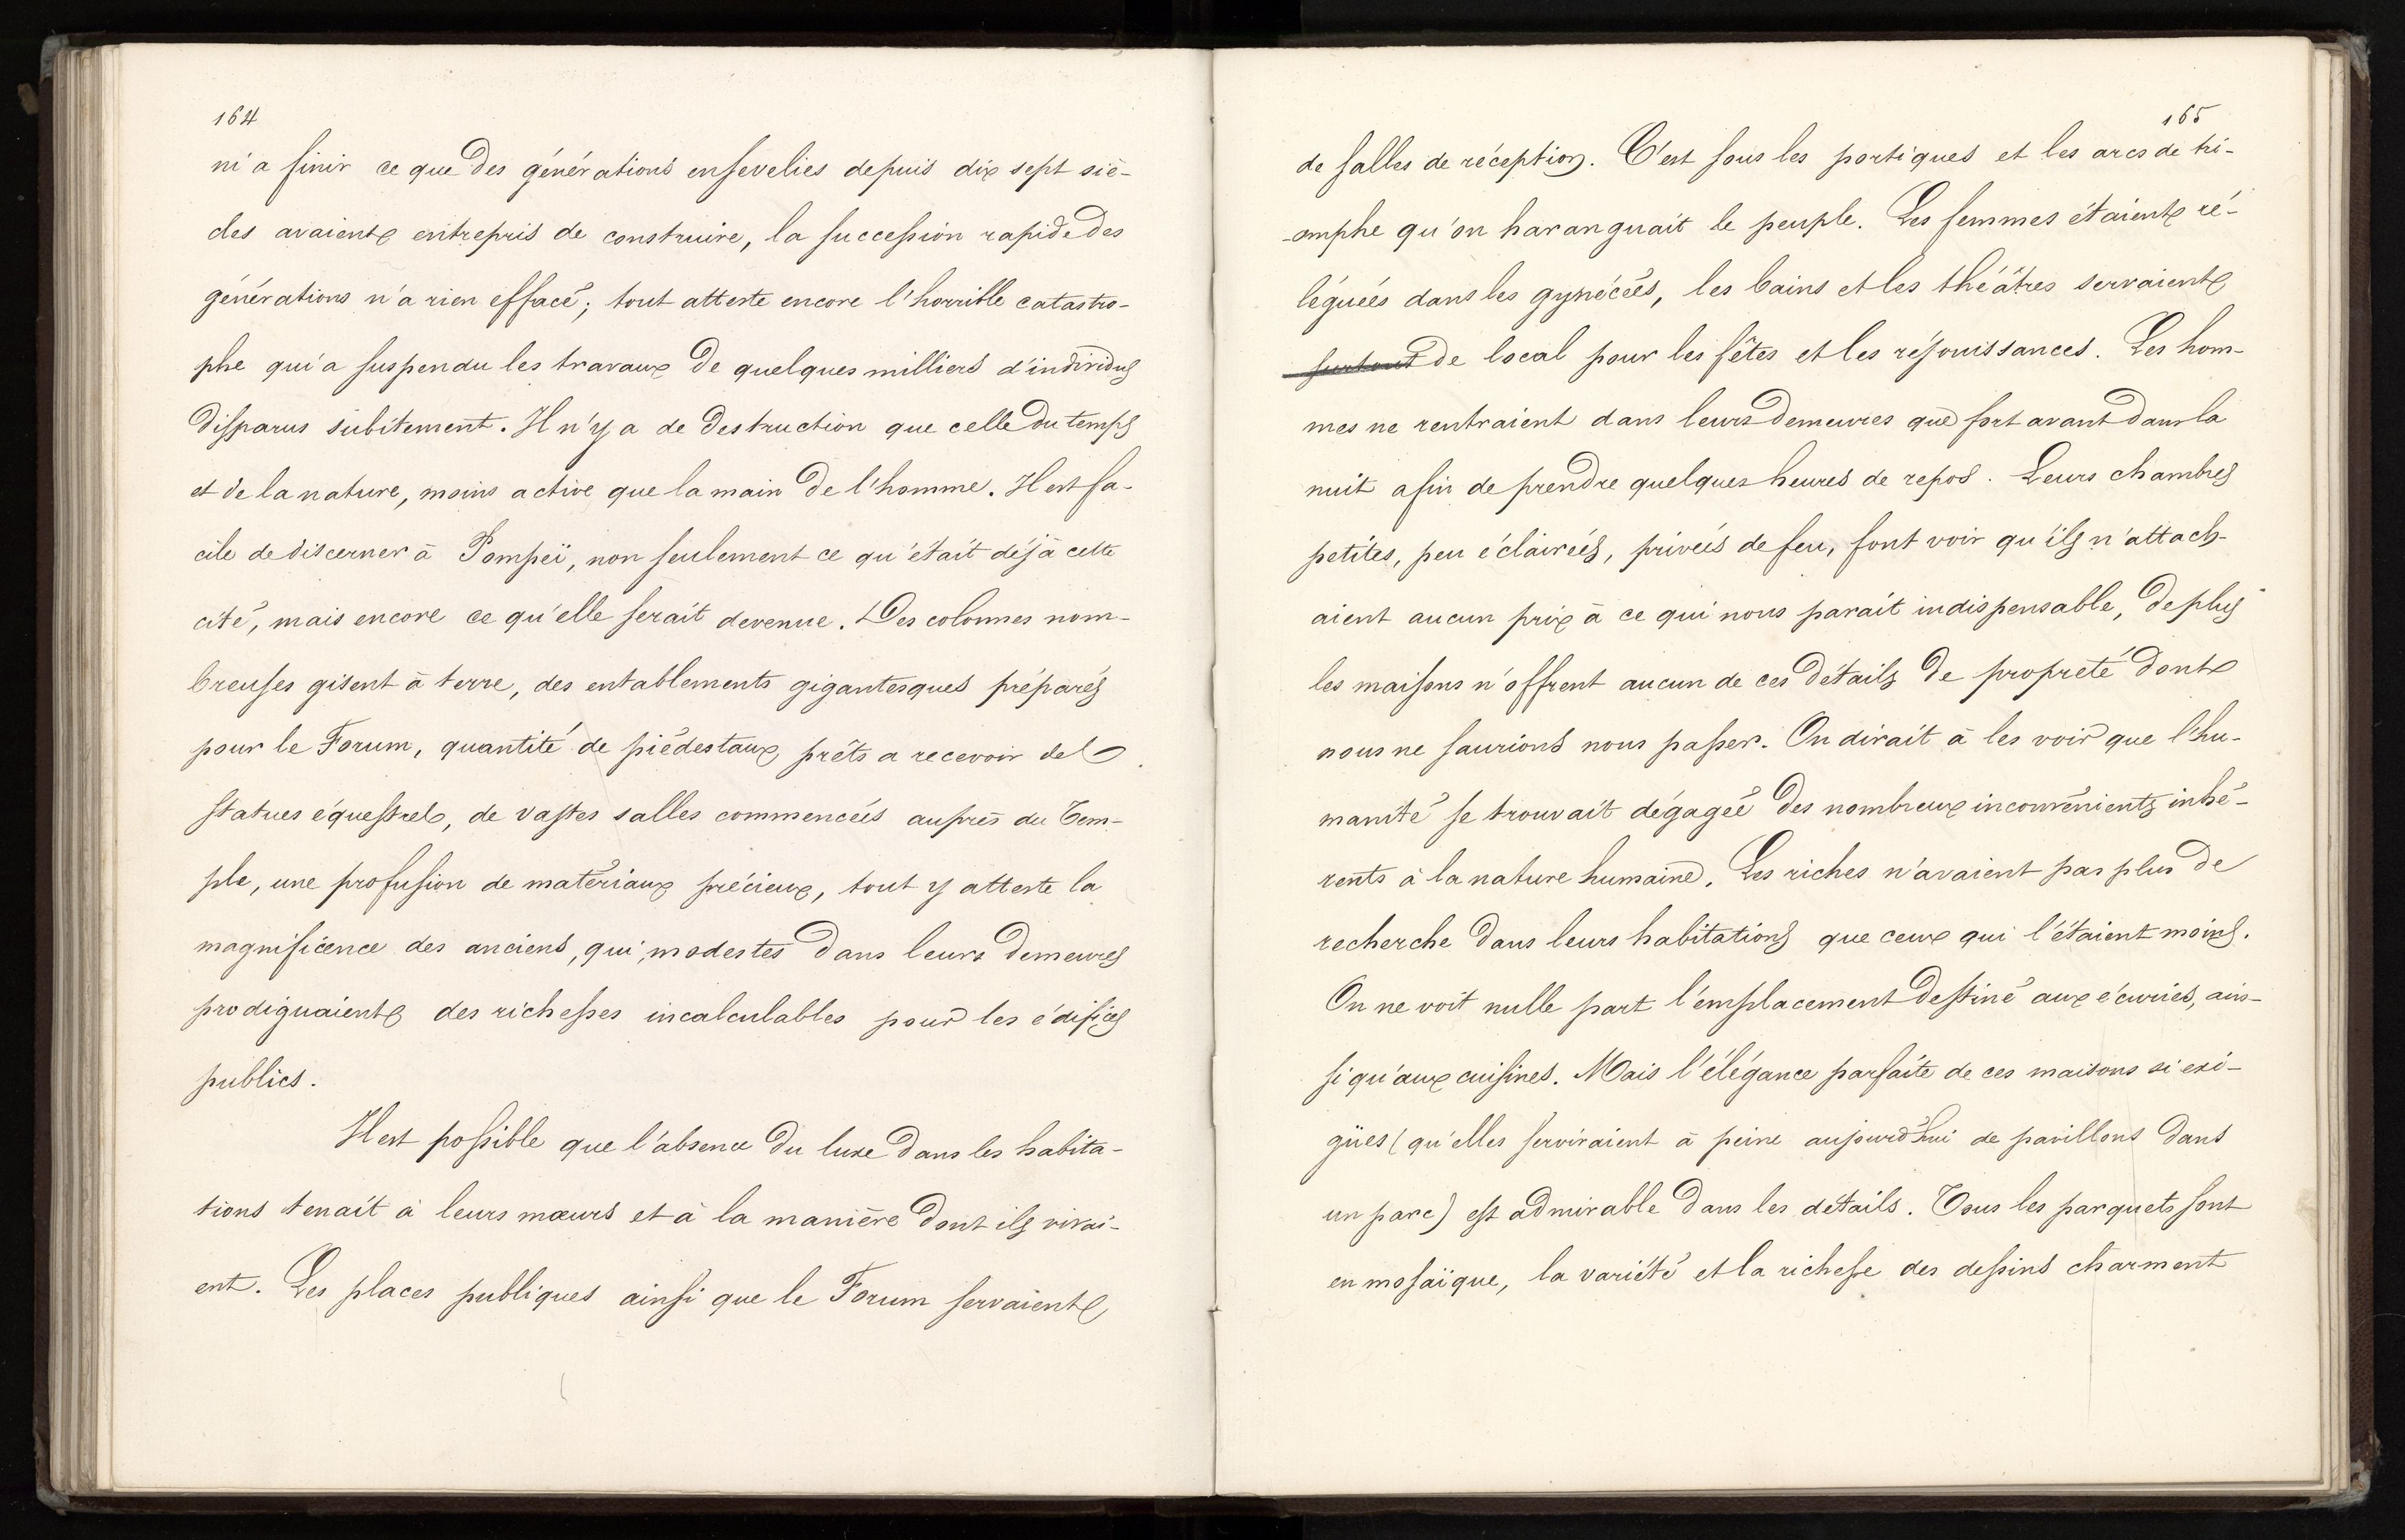 164
ni a finir ce que des générations ensevelies depuis dix sept siè-
cles avaient entrepris de construire, la succession rapide des
générations n'a rien effacé; tout atteste encore l'horrible catastro-
phe qui a suspendu les travaux de quelques milliers d'individus
disparus subitement. Il n'y a de destruction que celle du temps
et de la nature, moins active que la main de l'homme. Il est fa-
cile de discerner à Pompeï, non seulement ce qu'était déjà cette
cité, mais encore ce qu'elle serait devenue. Des colonnes nom-
breuses gisent à terre, des entablements gigantesques préparés
pour le Forum, quantité de piédestaux prêts a recevoir des
statues équestres, de vastes salles commencées auprès du Tem-
ple, une profusion de matériaux précieux, tout y atteste la
magnificence des anciens, qui, modestes dans leurs demeures
prodiguaient des richesses incalculables pour les édifices
publics.
Il est possible que l'absence du luxe dans les habita-
tions tenait à leurs mœurs et à la manière dont ils vivai-
ent. Les places publiques ainsi que le Forum servaient
165
de salles de réception. C'est sous les portiques et les arcs de tri-
-omphe qu'on haranguait le peuple. Les femmes étaient ré-
léguées dans les gynécées, les bains et les théâtres servaient
surtout de local pour les fêtes et les réjouissances. Les hom-
mes ne rentraient dans leurs demeures que fort avant dans la
nuit afin de prendre quelques heures de repos. Leurs chambres
petites, peu éclairées, privées de feu, font voir qu'ils n'attach-
aient aucun prix à ce qui nous parait indispensable, de plus
les maisons n'offrent aucun de ces détails de propreté dont
nous ne saurions nous passer. On dirait à les voir que l'hu-
manité se trouvait dégagée des nombreux inconvénients inhé-
rents à la nature humaine. Les riches n'avaient pas plus de
recherche dans leurs habitations que ceux qui l'étaient moins.
On ne voit nulle part l'emplacement destiné aux écuries, ain-
si qu'aux cuisines. Mais l'élégance parfaite de ces maisons si exi-
gües (qu'elles serviraient à peine aujourd'hui de pavillons dans
un parc) est admirable dans les détails. Tous les parquets sont
en mosaïque, la variété et la richesse des dessins charment